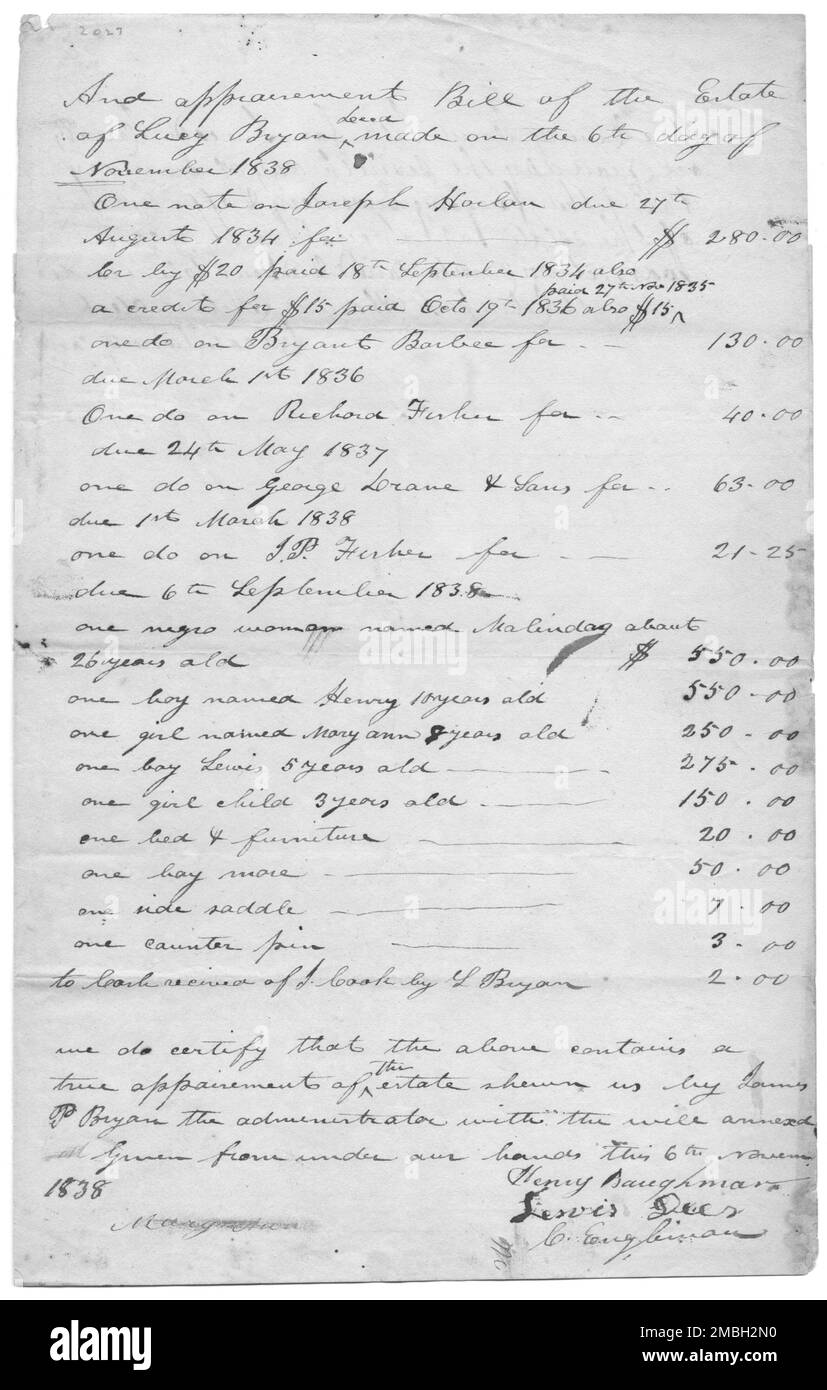 2027
And appraisement Bill of the Estate
of Lucy Bryan Decd made on the 6th day of
November 1838
One note on Joseph Harlan due 27th
August 1834 for $ 280.00
by $20 paid 18th September 1834 also
paid 27th Nov 1835
a credit for $15 paid Octo 19th 1836 also $15
one do on Bryant Barbee for 130.00
due March 1st 1836
One do on Richard Fisher for 40.00
due 24th May 1837
one do on George Drane & Sons for 63.00
due 1st March 1838
one do on J.P. Fisher for 21-25
due 6th September 1838
one negro woman named Malinda about
26 years old $ 550.00
one boy named Henry 10 years old 550.00
one girl named Mary ann 8 years old 250.00
one boy Lewis 5 years old 275.00
one girl child 3 years old 150.00
one bed & furniture 20.00
one bay mare 50.00
one side saddle 7.00
one counter pin 3.00
to Cash recived of J. Cook by L Bryan 2.00
we do certify that the above contains a
true appairement of the estate shewn us by James
P Bryan the administrator with the will annexed
Given from under our hands this 6th Novem
1838
Henry Baughman
Lewis Deer
C. Engleman
alamy
Image ID: 2MBH2N0
www.alamy.com